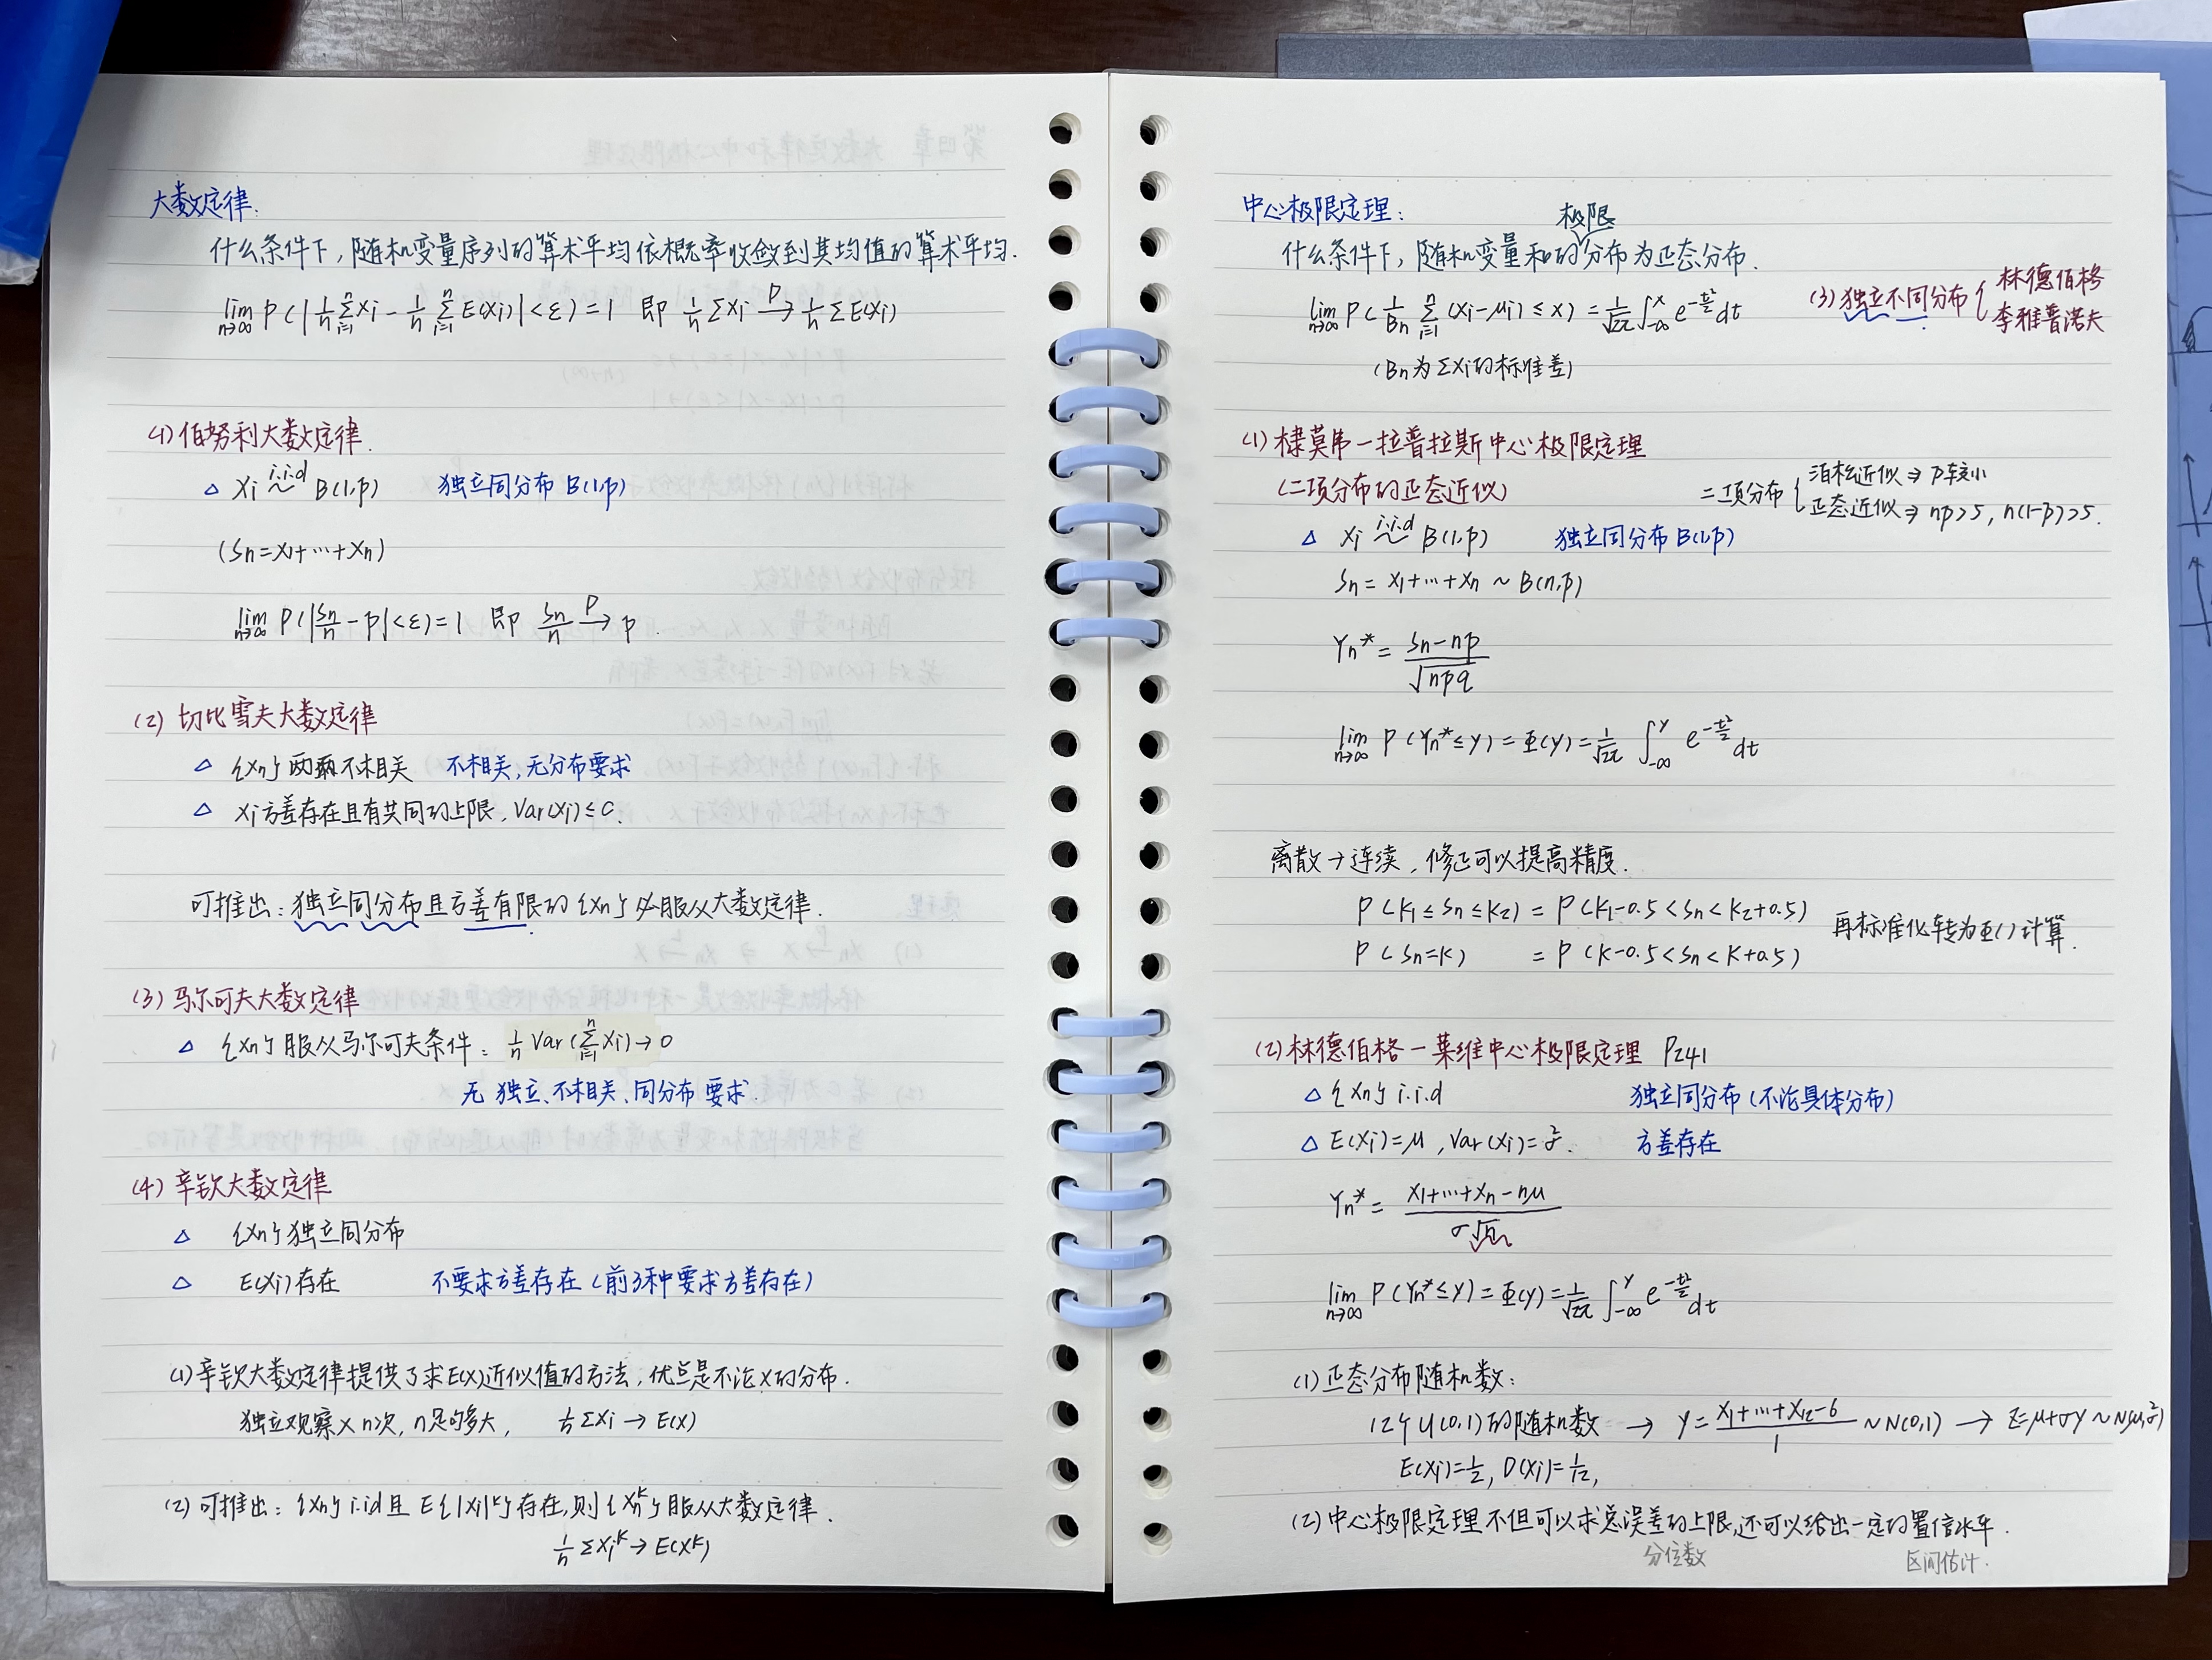 大数定律.
什么条件下,随机变量序列的算术平均依概率收敛到其均值的算术平均.
lim n→∞ P(|1/n Σ_{i=1}^{n} Xi - 1/n Σ_{i=1}^{n} E(Xi)|<ε)=1 即 1/n ΣXi →^P 1/n ΣE(Xi)
(1) 伯努利大数定律.
△ Xi i.i.d ~ B(1,p) 独立同分布 B(1,p)
(Sn=X1+…+Xn)
lim n→∞ P(|Sn/n - p|<ε)=1 即 Sn/n →^P p.
(2) 切比雪夫大数定律
△ {Xn} 两两不相关 不相关,无分布要求
△ Xi方差存在且有共同的上限, Var(Xi)≤c.
可推出:独立同分布且方差有限的{Xn}必服从大数定律.
(3) 马尔可夫大数定律
△ {Xn}服从马尔可夫条件: 1/n Var(Σ_{i=1}^{n} Xi)→0
无 独立、不相关、同分布 要求.
(4) 辛钦大数定律
△ {Xn}独立同分布
△ E(Xi)存在 不要求方差存在(前3种要求方差存在)
(1)辛钦大数定律提供了求E(X)近似值的方法,优点是不论X的分布.
独立观察X n次, n足够多大, 1/n ΣXi → E(X)
(2) 可推出: {Xn} i.i.d 且 E{|Xi|^k}存在,则{Xn^k}服从大数定律.
1/n ΣXi^k → E(X^k)
中心极限定理:
极限
什么条件下,随机变量和的分布为正态分布.
lim n→∞ P(1/Bn Σ_{i=1}^{n} (Xi-μi)≤x)=1/√2π ∫_{-∞}^{x} e^{-t²/2}dt
(3)独立不同分布{林德伯格
李雅普诺夫
(Bn为ΣXi的标准差)
(1) 棣莫弗-拉普拉斯中心极限定理
(二项分布的正态近似)
二项分布{泊松近似⇒p较小
正态近似⇒np>5, n(1-p)>5.
△ Xi i.i.d ~ B(1,p) 独立同分布 B(1,p)
Sn=X1+…+Xn ~ B(n,p)
Yn*=(Sn-np)/√npq
lim n→∞ P(Yn*≤y)=Φ(y)=1/√2π ∫_{-∞}^{y} e^{-t²/2}dt
离散→连续,修正可以提高精度.
P(k1≤Sn≤k2)=P(k1-0.5<Sn<k2+0.5)
再标准化转为Φ()计算.
P(Sn=k) =P(k-0.5<Sn<k+0.5)
(2)林德伯格-莱维中心极限定理 P241
△ {Xn} i.i.d 独立同分布(不论具体分布)
△ E(Xi)=μ, Var(Xi)=σ². 方差存在
Yn*=(X1+…+Xn-nμ)/σ√n
lim n→∞ P(Yn*≤y)=Φ(y)=1/√2π ∫_{-∞}^{y} e^{-t²/2}dt
(1)正态分布随机数:
12个U(0,1)的随机数 → Y=(X1+…+X12-6)/1 ~N(0,1) → Z=μ+σY~N(μ,σ²)
E(Xi)=1/2, D(Xi)=1/12,
(2)中心极限定理不但可以求总误差的上限,还可以给出一定的置信水平.
分位数 区间估计.